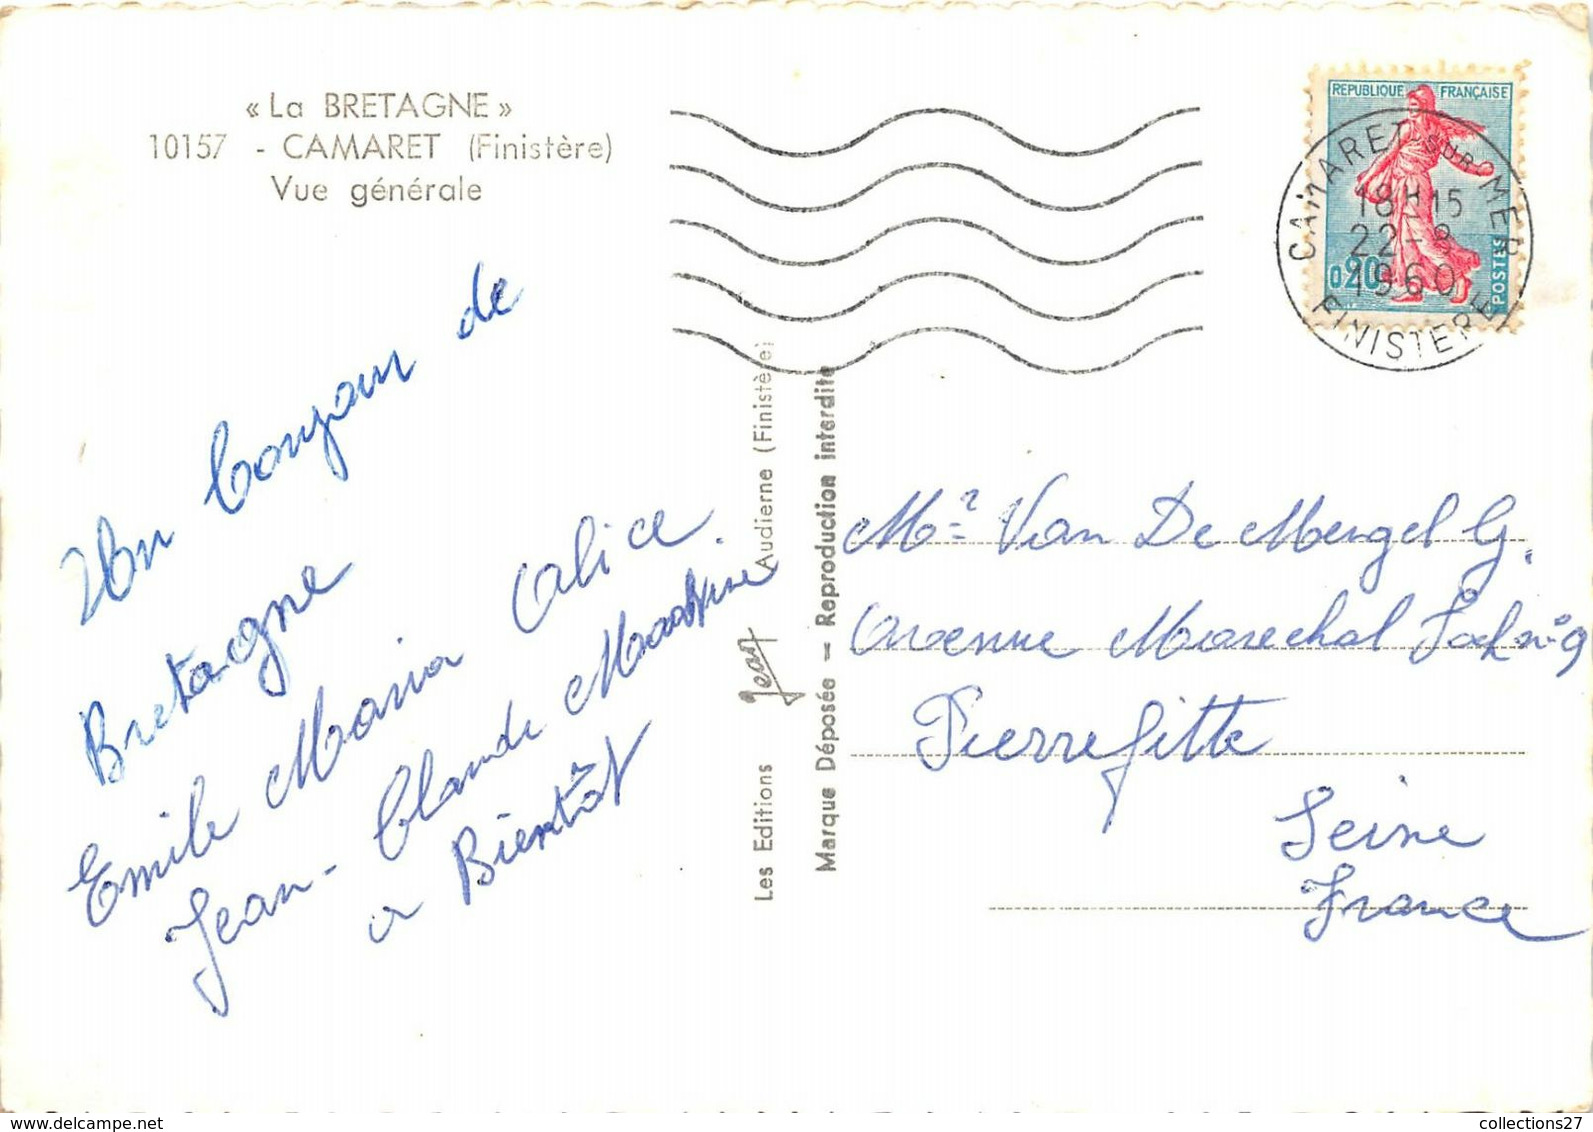 « La BRETAGNE »
10157 - CAMARET (Finistère)
Vue générale
Un bonjour de
Bretagne
Emile Maria Alice.
Jean-Claude
a Bientôt
Les Editions Jean Audierne (Finistère)
Marque Déposée — Reproduction interdite
REPUBLIQUE FRANÇAISE
0,20
POSTES
CAMARET-SUR-MER
18H15
22-8
1960
FINISTERE
Mr Van De Mergel G.
Avenue Marechal
Pierrefitte
Seine
France
www.delcampe.net
collections27